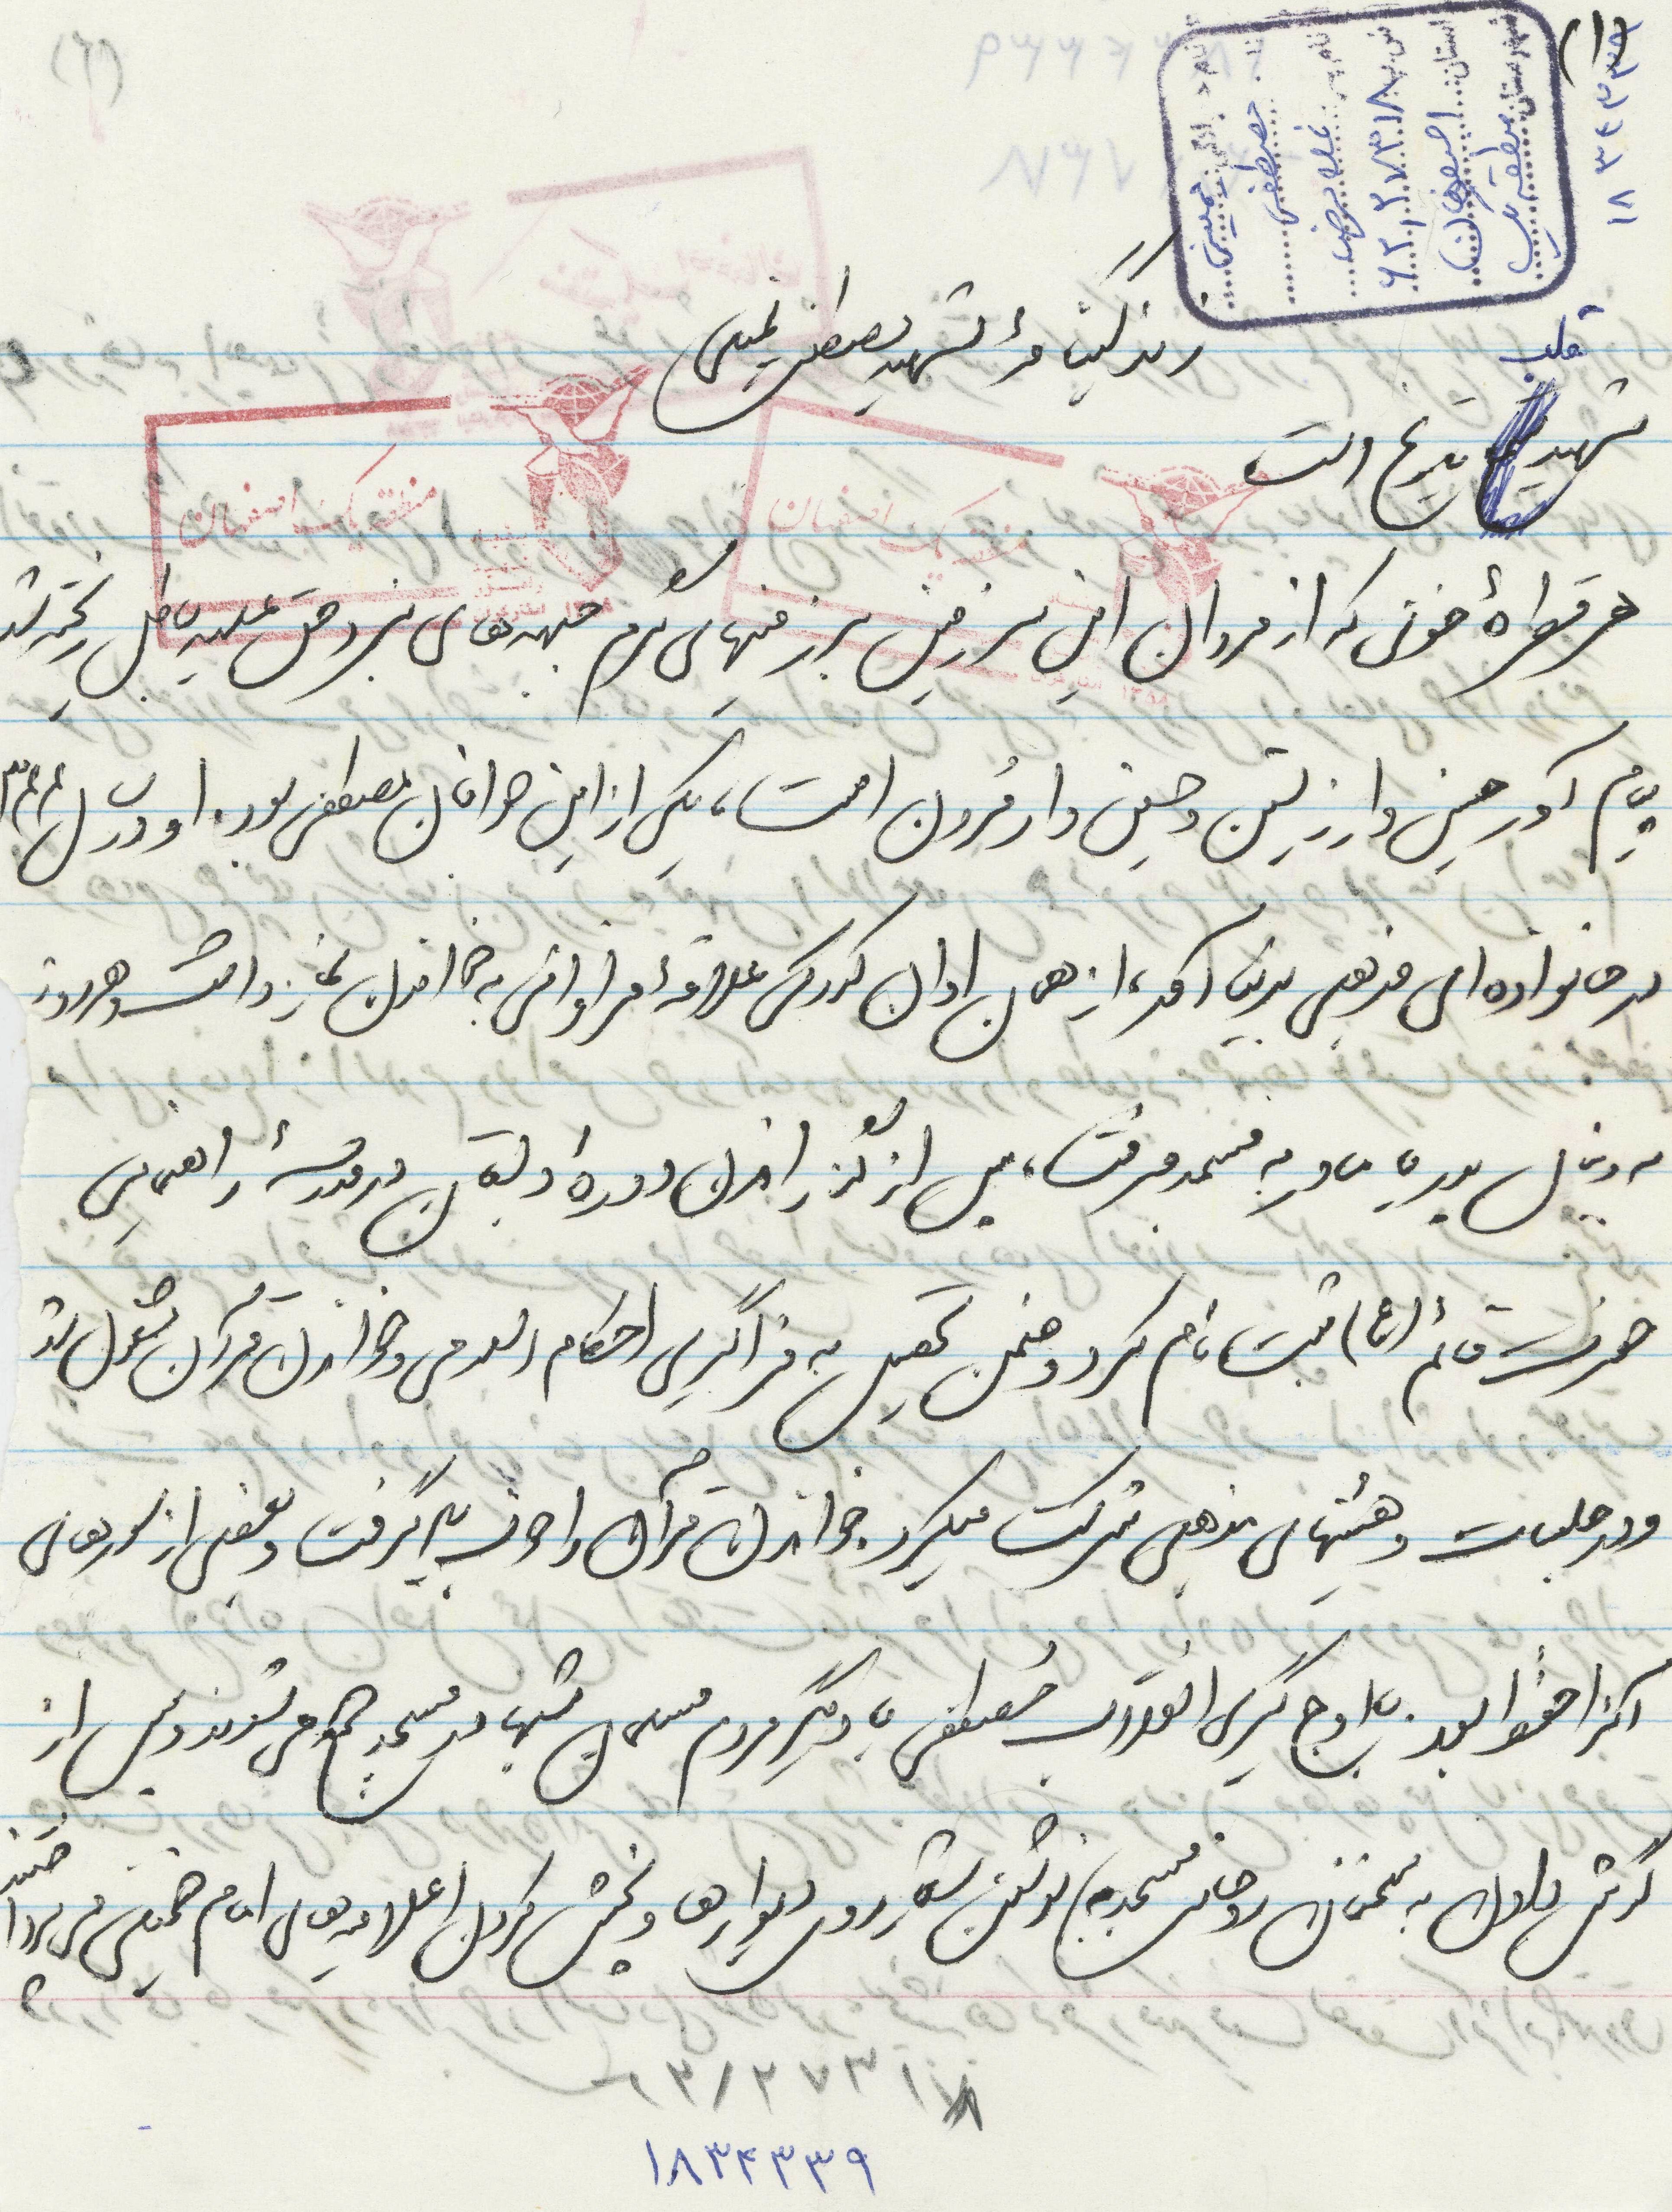 (۱)
۱۸۳۴۳۳۹
نام خانوادگی: خمیسی
نام: مصطفی
نام پدر: غلامرضا
استان: اصفهان
شهرستان: منطقه یک
زندگینامهٔ شهید مصطفی خمیسی
شهید قلب تاریخ است
هر قطرهٔ خونی که از مردان این سرزمین بر زمینهای گرم جبهه‌های نبرد حق علیه باطل ریخته شد
پیام آور حسین وار زیستن و حسین وار مردن است، یکی از این جوانان مصطفی بود. او در سال ۱۳۴۴
در خانواده‌ای مذهبی بدنیا آمد، از همان اوان کودکی علاقهٔ فراوانی به خواندن نماز داشت و هر روز
به دنبال پدر یا مادر به مسجد میرفت، پس از گذراندن دورهٔ دبستان در مدرسهٔ راهنمایی
حضرت قائم (ع) ثبت نام کرد و ضمن تحصیل به فراگیری احکام اسلامی و خواندن قرآن مشغول شد
و در جلسات و هیئتهای مذهبی شرکت میکرد خواندن قرآن را خوب یاد گرفت و بعضی از سوره‌های
آنرا حفظ بود. با اوج گیری انقلاب مصطفی با دیگر مردم مسلمان شبها در مسجد جمع می شدند و پس از
گوش دادن به سخنان روحانی مسجد به نوشتن شعار روی دیوارها و پخش کردن اعلامیه‌های امام خمینی می پرداختند
منطقه یک اصفهان
منطقه یک اصفهان
۱۸۳۴۳۳۹